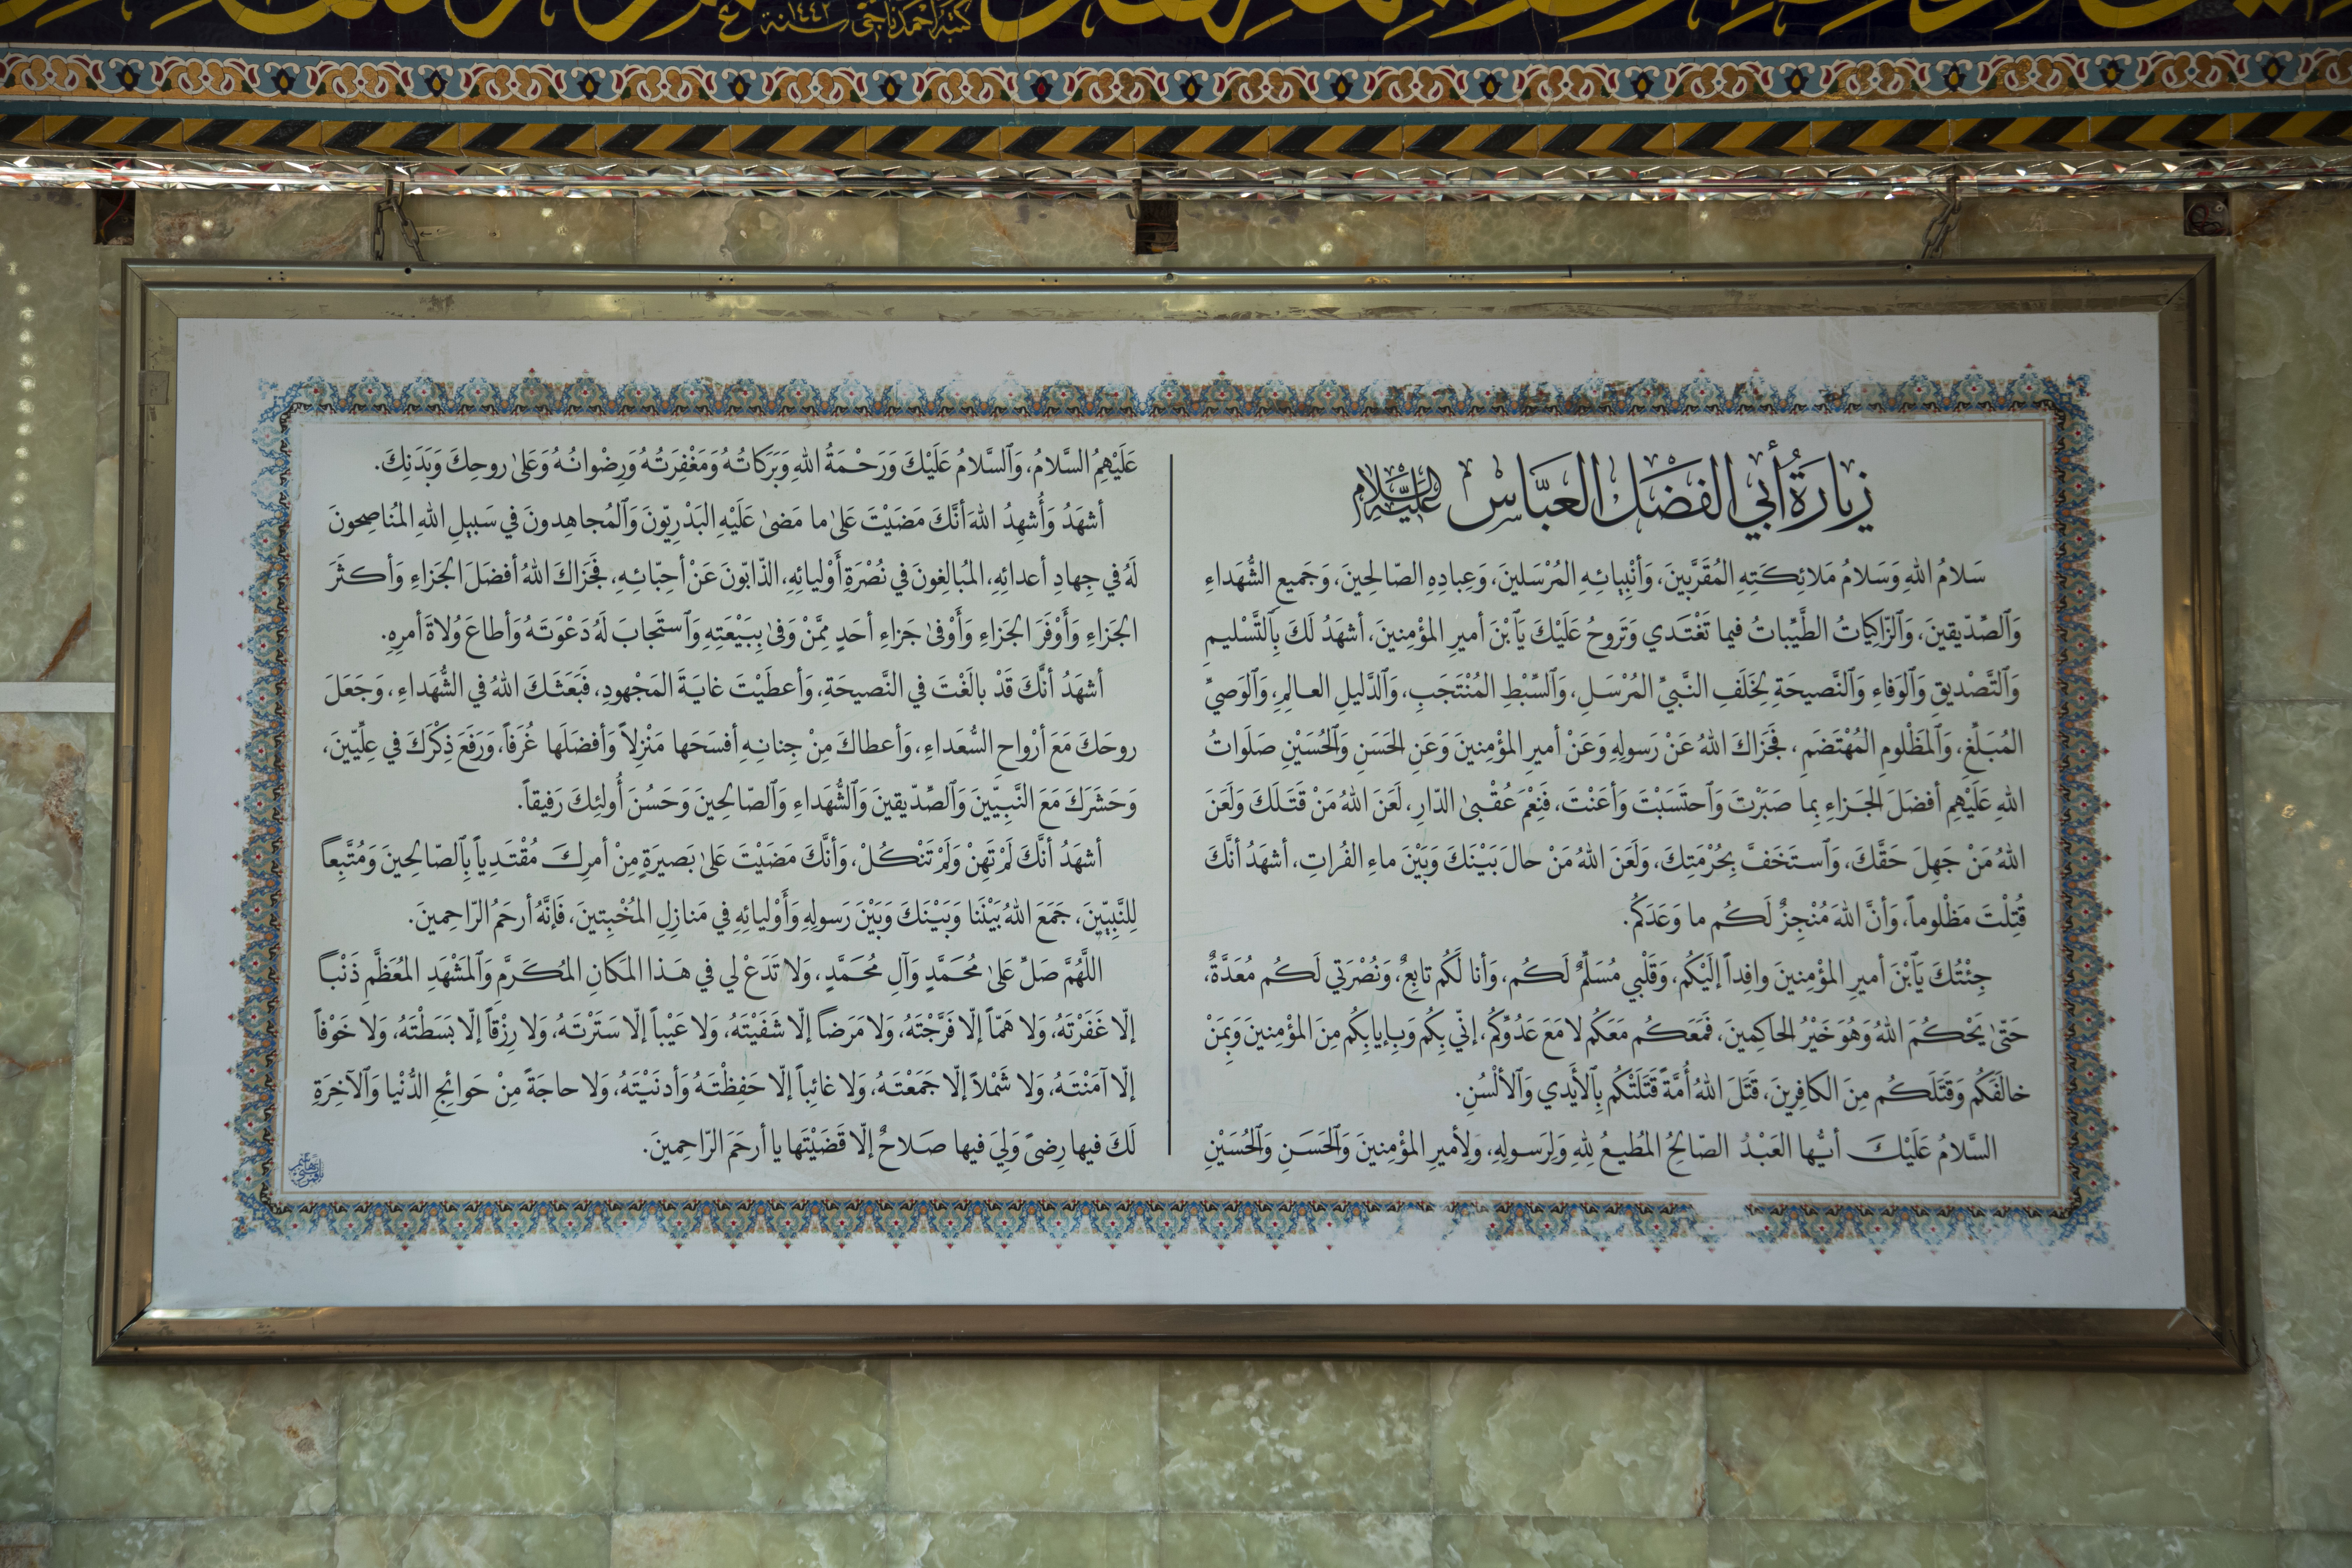 كتبه احمد ناجي سنة ١٤٤٢
زِيارَةُ أبي الفَضْلِ العَبَّاسِ عَلَيْهِ السَّلامُ
سَلامُ اللهِ وَسَلامُ مَلائِكَتِهِ المُقَرَّبينَ، وَأنْبِيائِهِ المُرْسَلينَ، وَعِبادِهِ الصّالِحينَ، وَجَميعِ الشُّهَداءِ
وَٱلصِّدّيقينَ، وَٱلزّاكِياتُ الطَّيِّباتُ فيما تَغْتَدي وَتَروحُ عَلَيْكَ يَاۤبْنَ أميرِ المؤْمِنينَ، أشهَدُ لَكَ بِٱلتَّسْليمِ
وَٱلتَّصْديقِ وَٱلوَفاءِ وَٱلنَّصيحَةِ لِخَلَفِ النَّبيِّ المُرْسَلِ، وَٱلسِّبْطِ المُنْتَجَبِ، وَٱلدَّليلِ العالِمِ، وَٱلوَصيِّ
المُبَلِّغِ، وَٱلمَظْلومِ المُهْتَضَمِ، فَجَزَاكَ اللهُ عَنْ رَسولِهِ وَعَنْ أميرِ المؤْمِنينَ وَعَنِ الحَسَنِ وَٱلحُسَيْنِ صَلَواتُ
اللهِ عَلَيْهِم أفضَلَ الجَزاءِ بِما صَبَرْتَ وَٱحتَسَبْتَ وَأعَنْتَ، فَنِعْمَ عُقْبىٰ الدّارِ، لَعَنَ اللهُ مَنْ قَتَلَكَ وَلَعَنَ
اللهُ مَنْ جَهِلَ حَقَّكَ، وَٱستَخَفَّ بِحُرْمَتِكَ، وَلَعَنَ اللهُ مَنْ حالَ بَيْنَكَ وَبَيْنَ ماءِ الفُراتِ، أشهَدُ أنَّكَ
قُتِلْتَ مَظْلوماً، وَأنَّ اللهَ مُنْجِزٌ لَكُم ما وَعَدَكُم.
جِئْتُكَ يَاۤبْنَ أميرِ المؤْمِنينَ وافِداً إلَيْكُم، وَقَلْبي مُسَلِّمٌ لَكُم، وَأنا لَكُم تابِعٌ، وَنُصْرَتي لَكُم مُعَدَّةٌ،
حَتّىٰ يَحْكُمَ اللهُ وَهُوَ خَيْرُ الحاكِمينَ، فَمَعَكُم مَعَكُم لا مَعَ عَدُوِّكُم، إنّي بِكُم وَبِإيابِكُم مِنَ المؤْمِنينَ وَبِمَنْ
خالَفَكُم وَقَتَلَكُم مِنَ الكافِرينَ، قَتَلَ اللهُ أُمَّةً قَتَلَتْكُم بِٱلأَيْدي وَٱلألْسُنِ.
السَّلامُ عَلَيْكَ أيُّها العَبْدُ الصّالِحُ المُطيعُ لِلّهِ وَلِرَسولِهِ، وَلِأميرِ المؤْمِنينَ وَٱلحَسَنِ وَٱلحُسَيْنِ
عَلَيْهِمُ السَّلامُ، وَٱلسَّلامُ عَلَيْكَ وَرَحْمَةُ اللهِ وَبَرَكاتُهُ وَمَغْفِرَتُهُ وَرِضْوانُهُ وَعَلىٰ روحِكَ وَبَدَنِكَ.
أشهَدُ وَأُشهِدُ اللهَ أنَّكَ مَضَيْتَ عَلىٰ ما مَضىٰ عَلَيْهِ البَدْرِيّونَ وَٱلمُجاهِدونَ في سَبيلِ اللهِ المُناصِحونَ
لَهُ في جِهادِ أعدائِهِ، المُبالِغونَ في نُصْرَةِ أَوْليائِهِ، الذّابّونَ عَنْ أحِبّائِهِ، فَجَزَاكَ اللهُ أفضَلَ الجَزاءِ وَأكثَرَ
الجَزاءِ وَأَوْفَرَ الجَزاءِ وَأَوْفىٰ جَزاءِ أحَدٍ مِمَّنْ وَفىٰ بِبَيْعَتِهِ وَٱستَجابَ لَهُ دَعْوَتَهُ وَأطاعَ وُلاةَ أمرِهِ.
أشهَدُ أنَّكَ قَدْ بالَغْتَ في النَّصيحَةِ، وَأعطَيْتَ غايَةَ المَجْهودِ، فَبَعَثَكَ اللهُ في الشُّهَداءِ، وَجَعَلَ
روحَكَ مَعَ أرْواحِ السُّعَداءِ، وَأعطاكَ مِنْ جِنانِهِ أفسَحَها مَنْزِلاً وَأفضَلَها غُرَفاً، وَرَفَعَ ذِكْرَكَ في عِلِّيّينَ،
وَحَشَرَكَ مَعَ النَّبِيّينَ وَٱلصِّدّيقينَ وَٱلشُّهَداءِ وَٱلصّالِحينَ وَحَسُنَ أُولئِكَ رَفيقاً.
أشهَدُ أنَّكَ لَمْ تَهِنْ وَلَمْ تَنْكُلْ، وَأنَّكَ مَضَيْتَ عَلىٰ بَصيرَةٍ مِنْ أمرِكَ مُقْتَدِياً بِٱلصّالِحينَ وَمُتَّبِعاً
لِلنَّبِيّينَ، جَمَعَ اللهُ بَيْنَنا وَبَيْنَكَ وَبَيْنَ رَسولِهِ وَأَوْليائِهِ في مَنازِلِ المُخْبِتينَ، فَإنَّهُ أرحَمُ الرّاحِمينَ.
اللَّهُمَّ صَلِّ عَلىٰ مُحَمَّدٍ وَآلِ مُحَمَّدٍ، وَلا تَدَعْ لي في هَذا المَكانِ المُكَرَّمِ وَٱلمَشْهَدِ المُعَظَّمِ ذَنْباً
إلّا غَفَرْتَهُ، وَلا هَمّاً إلّا فَرَّجْتَهُ، وَلا مَرَضاً إلّا شَفَيْتَهُ، وَلا عَيْباً إلّا سَتَرْتَهُ، وَلا رِزْقاً إلّا بَسَطْتَهُ، وَلا خَوْفاً
إلّا آمَنْتَهُ، وَلا شَمْلاً إلّا جَمَعْتَهُ، وَلا غائِباً إلّا حَفِظْتَهُ وَأدنَيْتَهُ، وَلا حاجَةً مِنْ حَوائِجِ الدُّنْيا وَٱلآخِرَةِ
لَكَ فيها رِضىً وَلِيَ فيها صَلاحٌ إلّا قَضَيْتَها يا أرحَمَ الرّاحِمينَ.